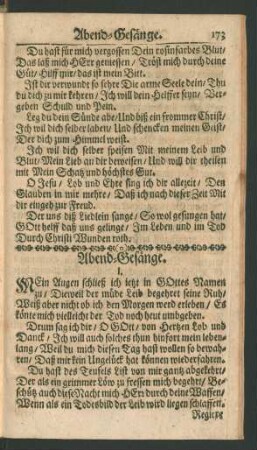 Abend-Gesänge. 173
Du hast für mich vergossen Dein rosinfarbes Blut/
Das laß mich HErr geniessen / Tröst mich durch deine
Güt/ Hülff mir/ das ist mein Bitt.
Ist dir verwundt so sehre Die arme Seele dein/ Thu
du dich zu mir kehren / Ich will dein Helffer seyn/ Ver-
geben Schuld und Pein.
Leg du dein Sünde abe/ Und biß ein frommer Christ/
Ich wil dich selber laden/ Und schencken meinen Geist/
Der dich zum Himmel weist.
Ich wil dich selber speisen Mit meinem Leib und
Blut/ Mein Lieb an dir beweisen/ Und will dir theilen
mit Mein Schatz und höchstes Gut.
O Jesu / Lob und Ehre sing ich dir allezeit/ Den
Glauben in mir mehre / Daß ich nach dieser Zeit Mit
dir eingeh zur Freud.
Der uns diß Liedlein sange/ So wol gesungen hat/
GOtt helff daß uns gelinge/ Im Leben und im Tod
Durch Christi Wunden roth.
Abend-Gesänge.
I.
MEin Augen schließ ich jetzt in GOttes Namen
zu/ Dieweil der müde Leib begehret seine Ruh/
Weiß aber nicht ob ich den Morgen werd erleben / Es
könte mich vielleicht der Tod noch heut umbgeben.
Drum sag ich dir / O GOtt/ von Hertzen Lob und
Danck / Ich will auch solches thun hinfort mein leben-
lang/ Weil du mich diesen Tag hast wollen so bewah-
ren/ Daß mir kein Ungelück hat können wiederfahren.
Du hast des Teufels List von mir gantz abgekehrt/
Der als ein grimmer Löw zu fressen mich begehrt/ Be-
schütz auch diese Nacht mich HErr durch deine Waffen/
Wenn als ein Todesbild der Leib wird liegen schlaffen.